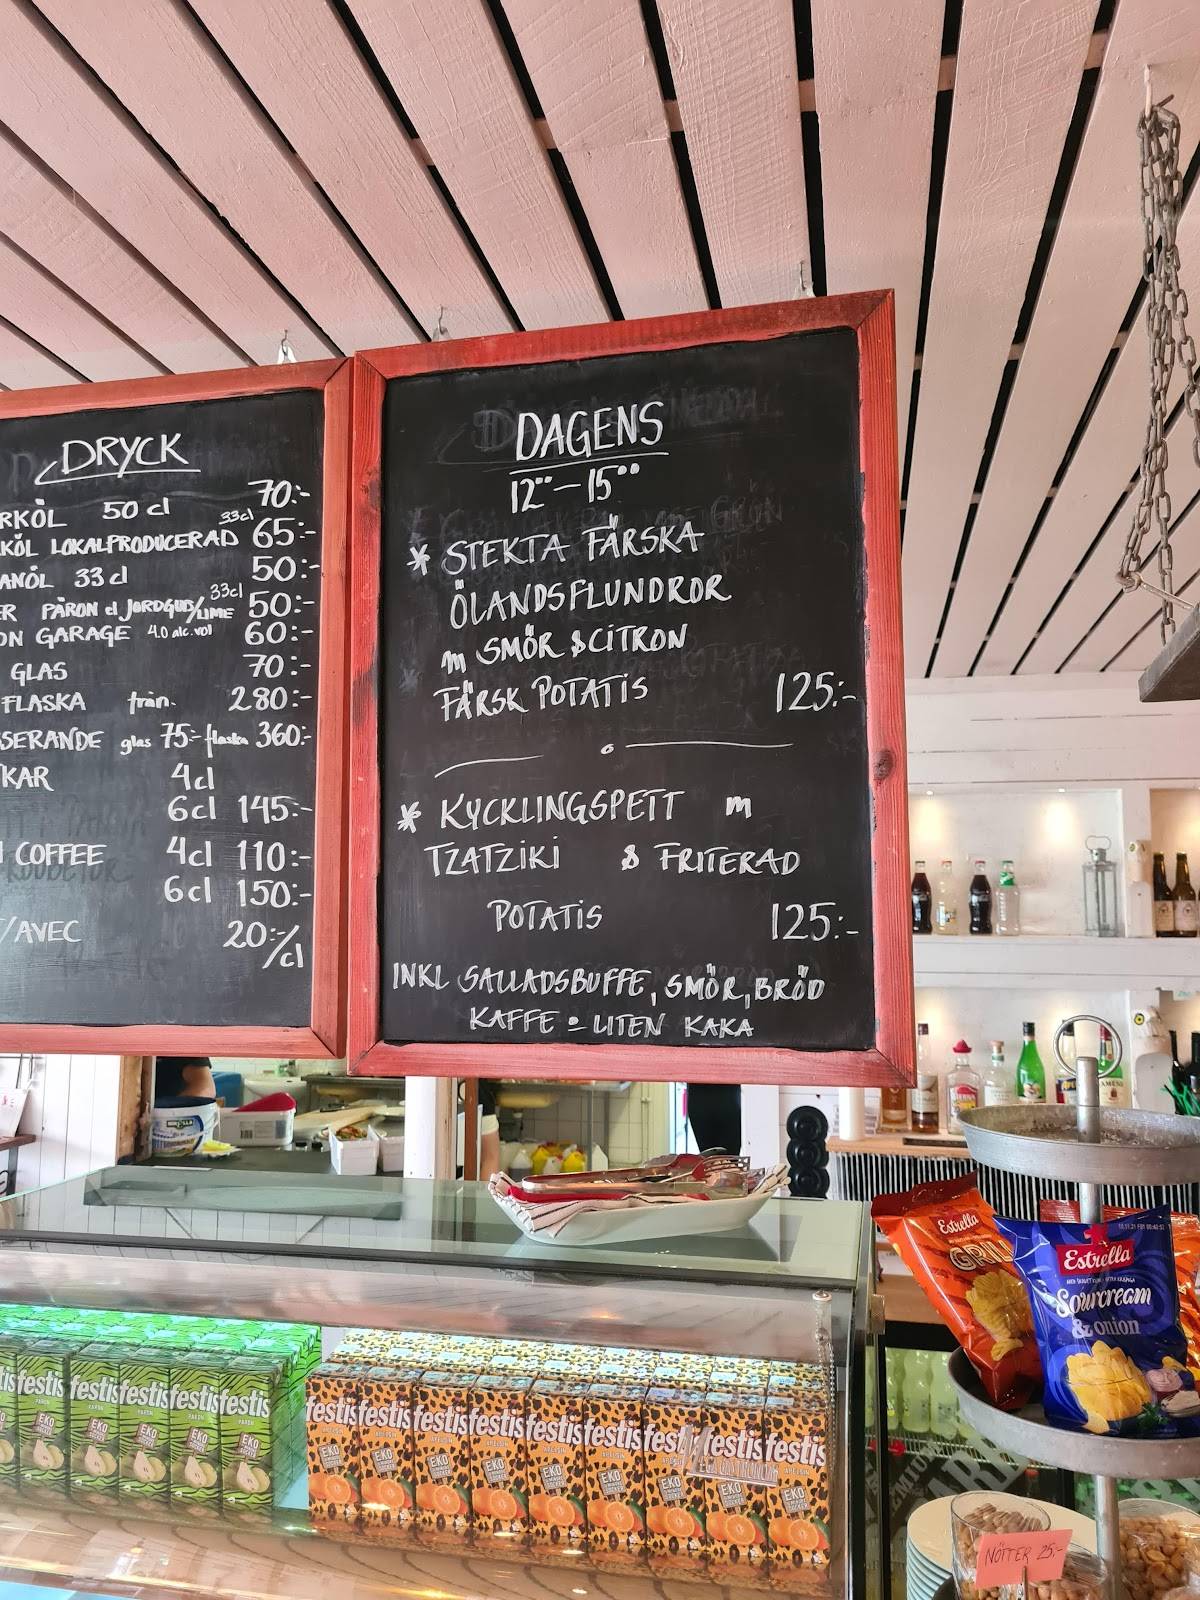 DRYCK
50 cl 70:-
LOKALPRODUCERAD 33cl 65:-
33 cl 50:-
PÄRON el JORDGUB/LIME 33cl 50:-
GARAGE 4.0 alc.vol 60:-
GLAS 70:-
FLASKA från. 280:-
glas 75:- flaska 360:-
4cl
6cl 145:-
COFFEE 4cl 110:-
6cl 150:-
/AVEC 20:-/cl
DAGENS
12°°-15°°
* STEKTA FÄRSKA
ÖLANDSFLUNDROR
m SMÖR & CITRON
FÄRSK POTATIS 125:-
* KYCKLINGSPETT m
TZATZIKI & FRITERAD
POTATIS 125:-
INKL SALLADSBUFFE, SMÖR, BRÖD
KAFFE o LITEN KAKA
Estrella
GRILL
Estrella
Sourcream
& onion
festis festis festis festis festis
PÄRON
EKO
festis festis festis festis festis festis festis festis festis
APELSIN
EKO
NÖTTER 25:-